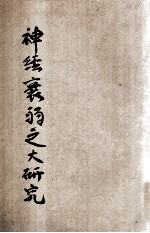 神経衰弱之大研究